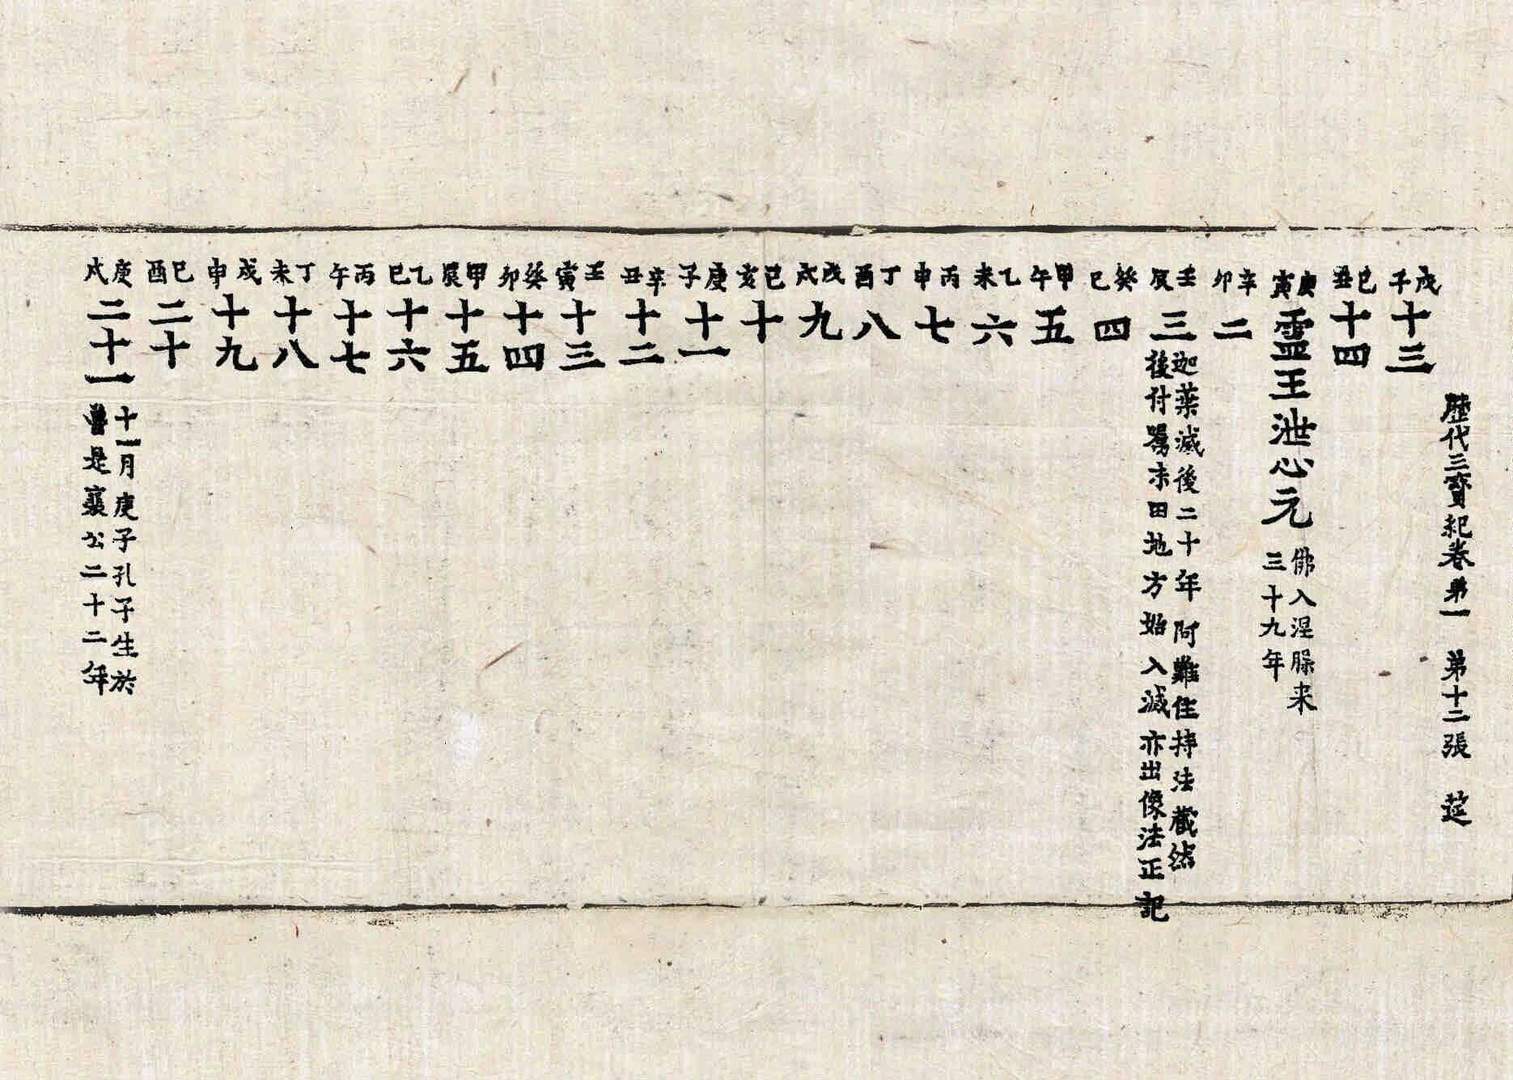 歷代三寶紀卷第一 第十二張 莚
戊子 十三
己丑 十四
庚寅 靈王泄心元 佛入涅槃来
三十九年
辛卯 二
壬辰 三 迦葉滅後二十年阿難住持法藏然
後付囑末田地方始入滅亦出像法正記
癸巳 四
甲午 五
乙未 六
丙申 七
丁酉 八
戊戌 九
己亥 十
庚子 十一
辛丑 十二
壬寅 十三
癸卯 十四
甲辰 十五
乙巳 十六
丙午 十七
丁未 十八
戊申 十九
己酉 二十
庚戌 二十一 十一月庚子孔子生於
魯是襄公二十二年